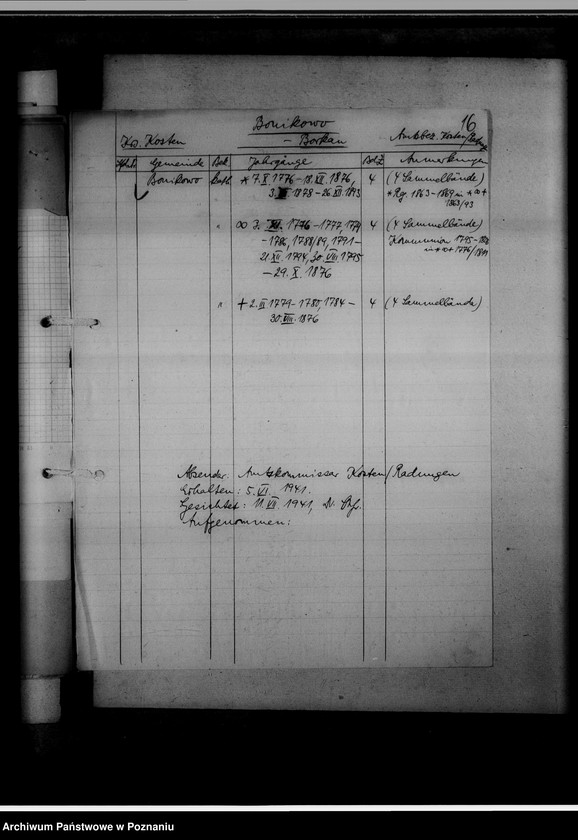 16
Bonikowo
Krs. Kosten - Borkau Amtsbez. Kosten/Radungen
Gemeinde Bek. Jahrgänge Bd.Z. Anmerkungen
Bonikowo kath. * 7.X.1776-18.XII.1876, 4 (4 Sammelbände)
1878-26.XII.1893 * Rg. 1863-1869 in * ∞ +
1863/93
" ∞ 3. 1776-1777, 1779 4 (4 Sammelbände)
-1786, 1788/89, 1791- Kommunion 1795-
21.XII.1794, 30.VIII.1795 in * ∞ + 1776/1811
-29.X.1876
" + 2.III.1779-1780, 1784- 4 (4 Sammelbände)
30.VIII.1876
Absender: Amtskommissar Kosten/Radungen
Erhalten: 5.VI.1941.
Gesichtet: 11.VII.1941, Dr.
Aufgenommen:
Archiwum Państwowe w Poznaniu